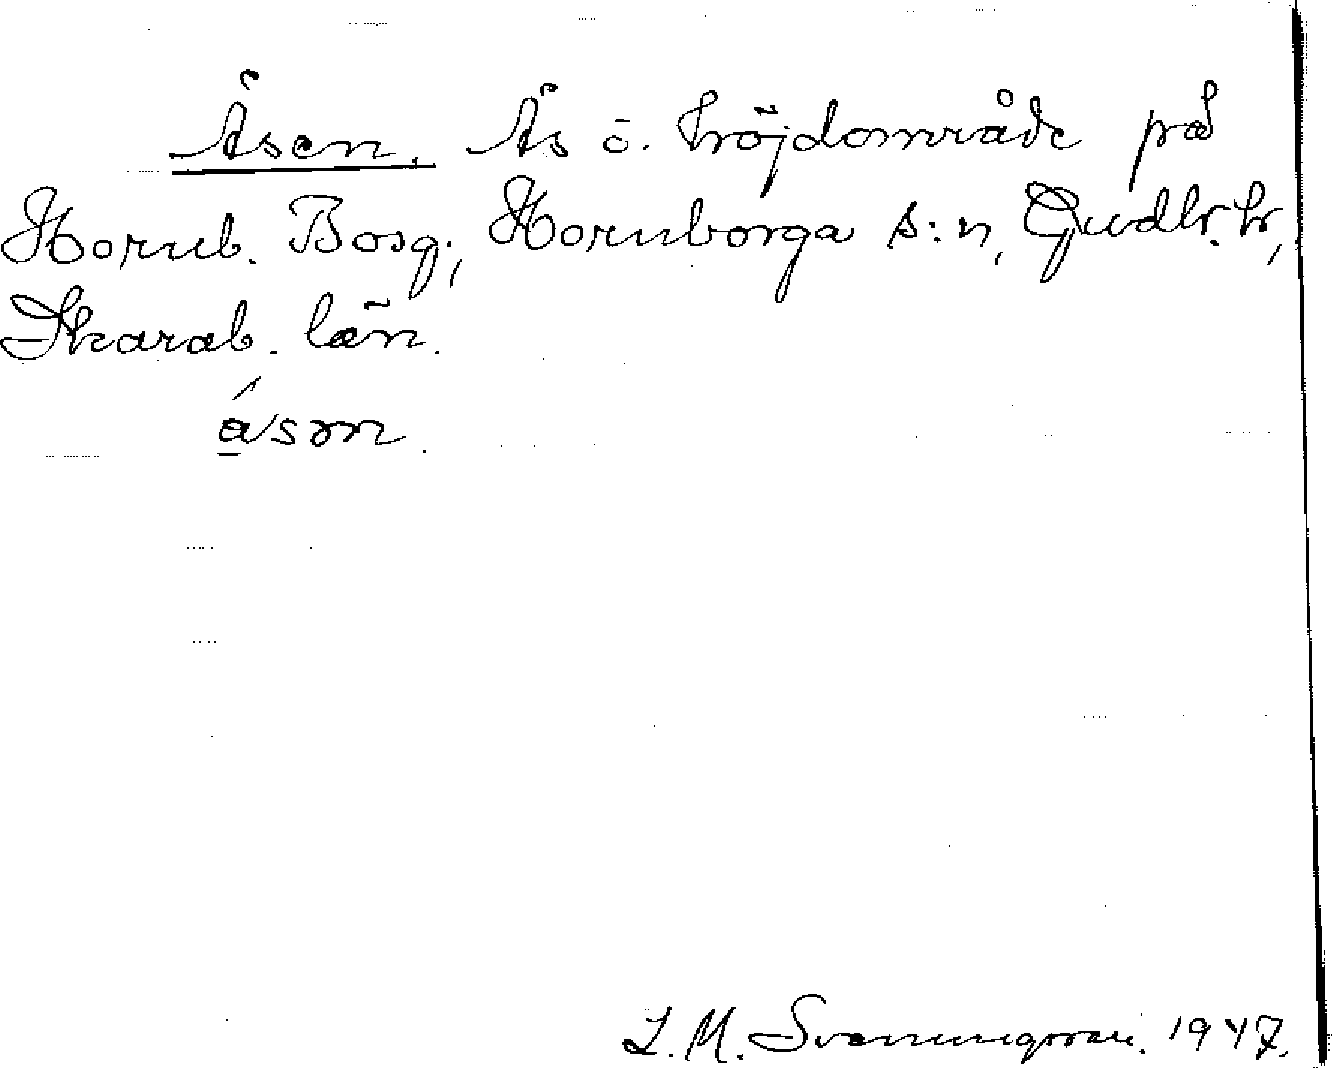 Åsen. Ås o. höjdområde på
Hornb. Bosg., Hornborga s:n, Gudh. h,
Skarab. län.
åsən.
L. M. Svenungsson. 1947.